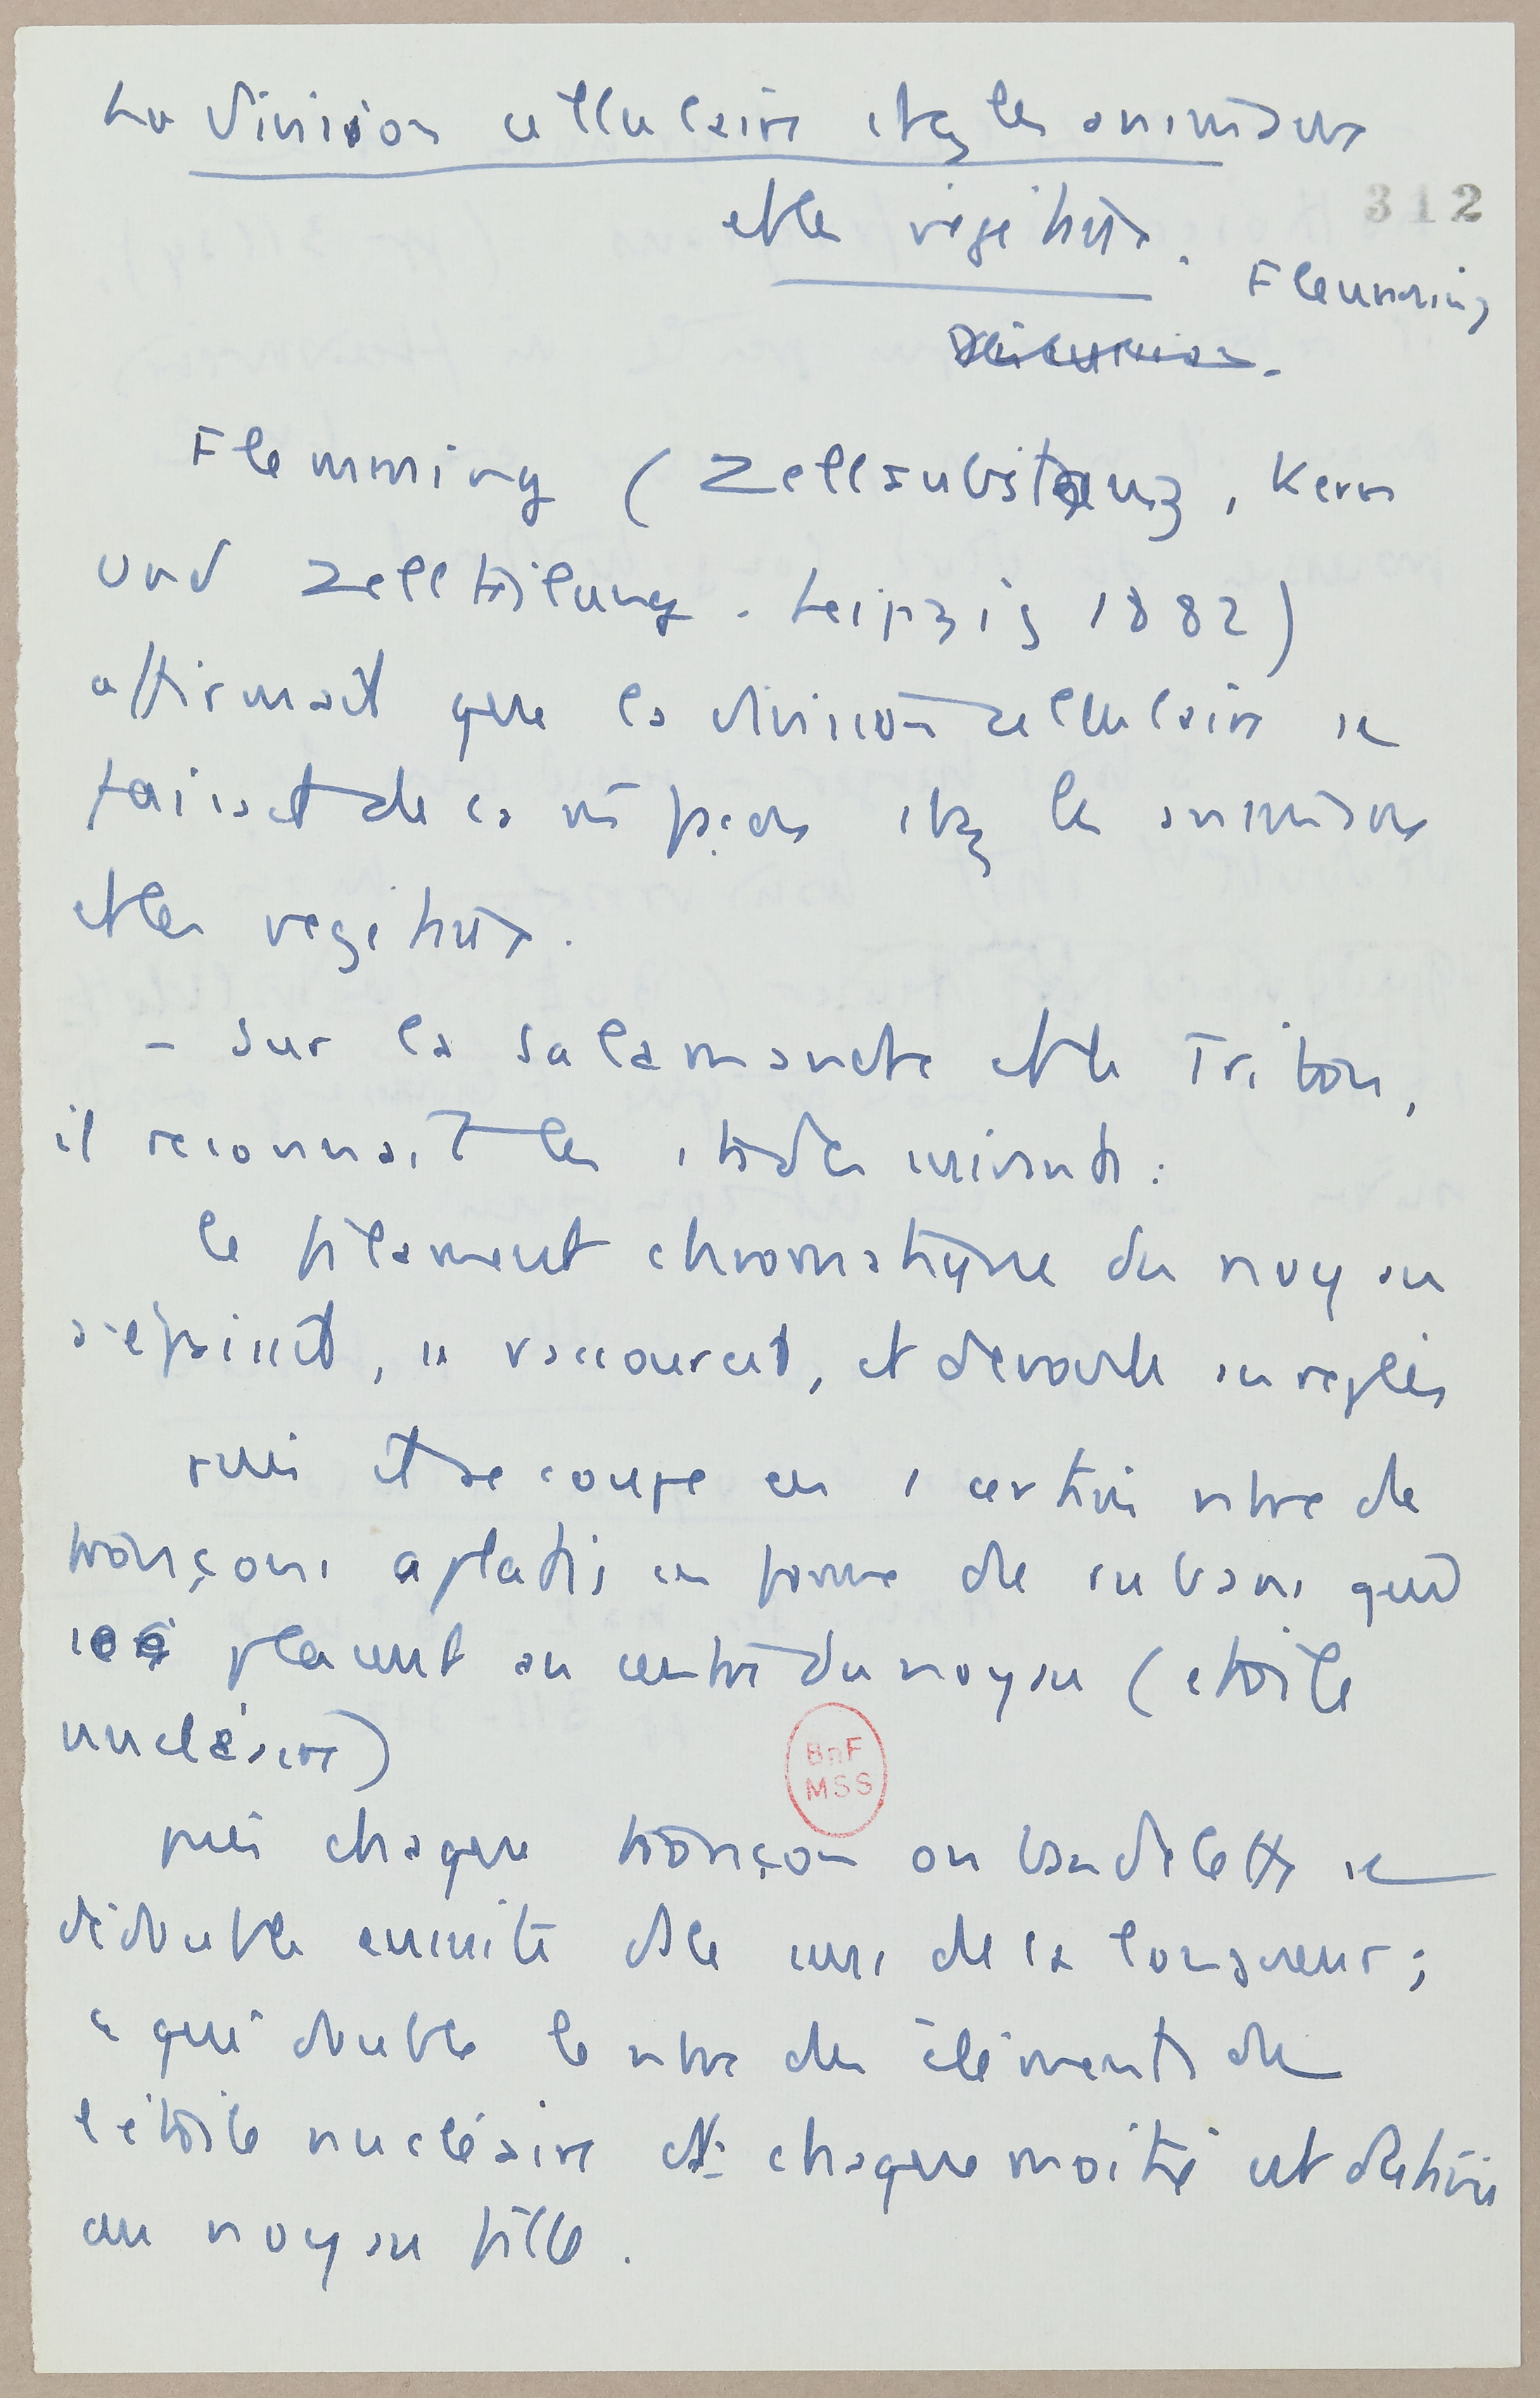 La division cellulaire chez les animaux
et les végétaux.
312
Flemming
Flemming (Zellsubstanz, Kern
und Zellteilung. Leipzig 1882)
affirmait que la division cellulaire se
faisait de la m̂ façon chez les animaux
et les végétaux.
- Sur la salamandre et le Triton,
il reconnait les stades suivants :
le filament chromatique du noyau
s'épaissit, se raccourcit, et devient
puis il se coupe en 1 certain nbre de
tronçons aplatis en forme de rubans qui
se placent au centre du noyau (étoile
nucléaire)
BnF
MSS
puis chaque tronçon ou bandelette se
dédouble ensuite ds le sens de la longueur ;
ce qui double le nbre des éléments de
l'étoile nucléaire et chaque moitié est destinée
au noyau fille.